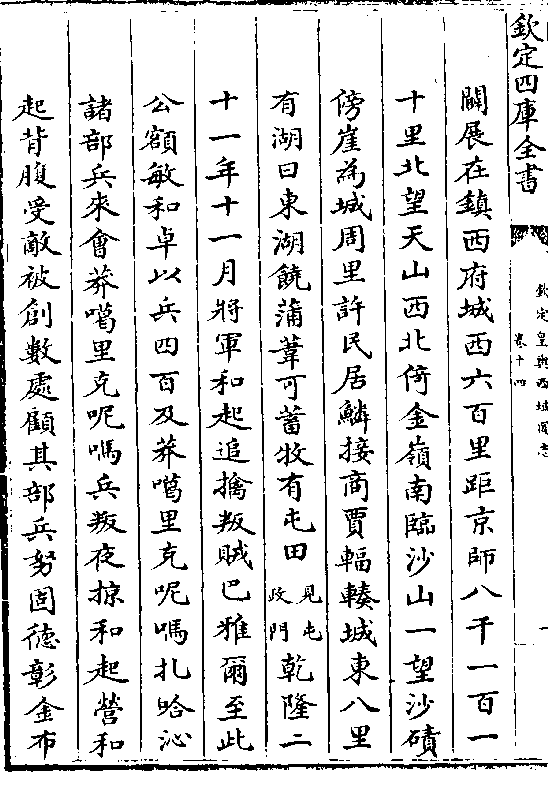 欽定四庫全書
欽定皇輿西域圖志
卷十四
一
闢展在鎮西府城西六百里距京師八千一百一
十里北望天山西北倚金嶺南臨沙山一望沙磧
傍崖為城周里許民居鱗接商賈輻輳城東八里
有湖曰東湖饒蒲葦可蓄牧有屯田見屯政門乾隆二
十一年十一月將軍和起追擒叛賊巴雅爾至此
公額敏和卓以兵四百及莽噶里克呢嗎扎哈沁
諸部兵來會莽噶里克呢嗎兵叛夜掠和起營和
起背腹受敵被創數處顧其部兵努固德彰金布